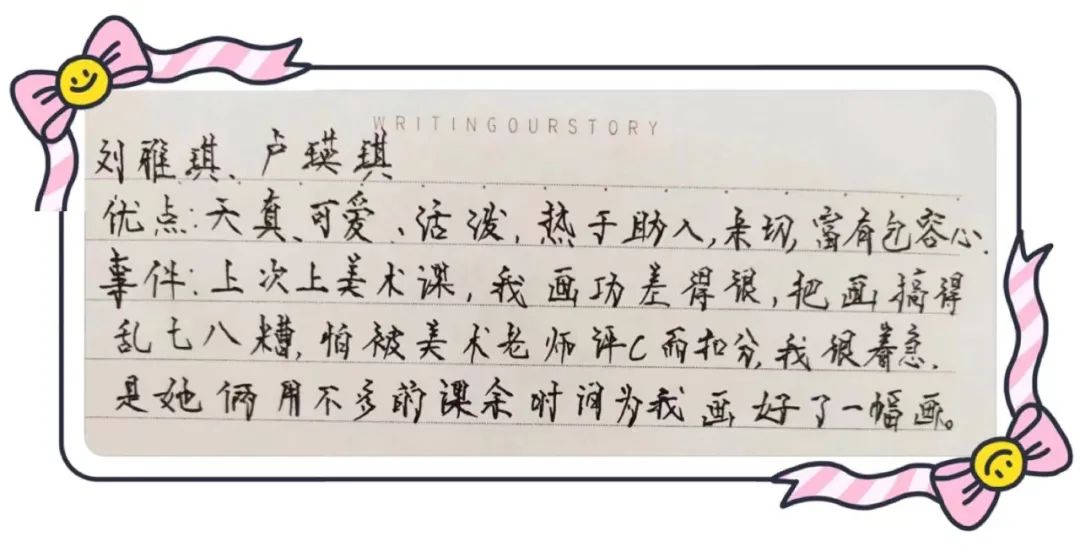 WRITINGOURSTORY
刘雅琪、卢瑛琪
优点:天真、可爱、活泼,热于助人,亲切,富有包容心.
事件:上次上美术课,我画功差得很,把画搞得
乱七八糟,怕被美术老师评C而扣分,我很着急.
是她俩用不多的课余时间为我画好了一幅画。